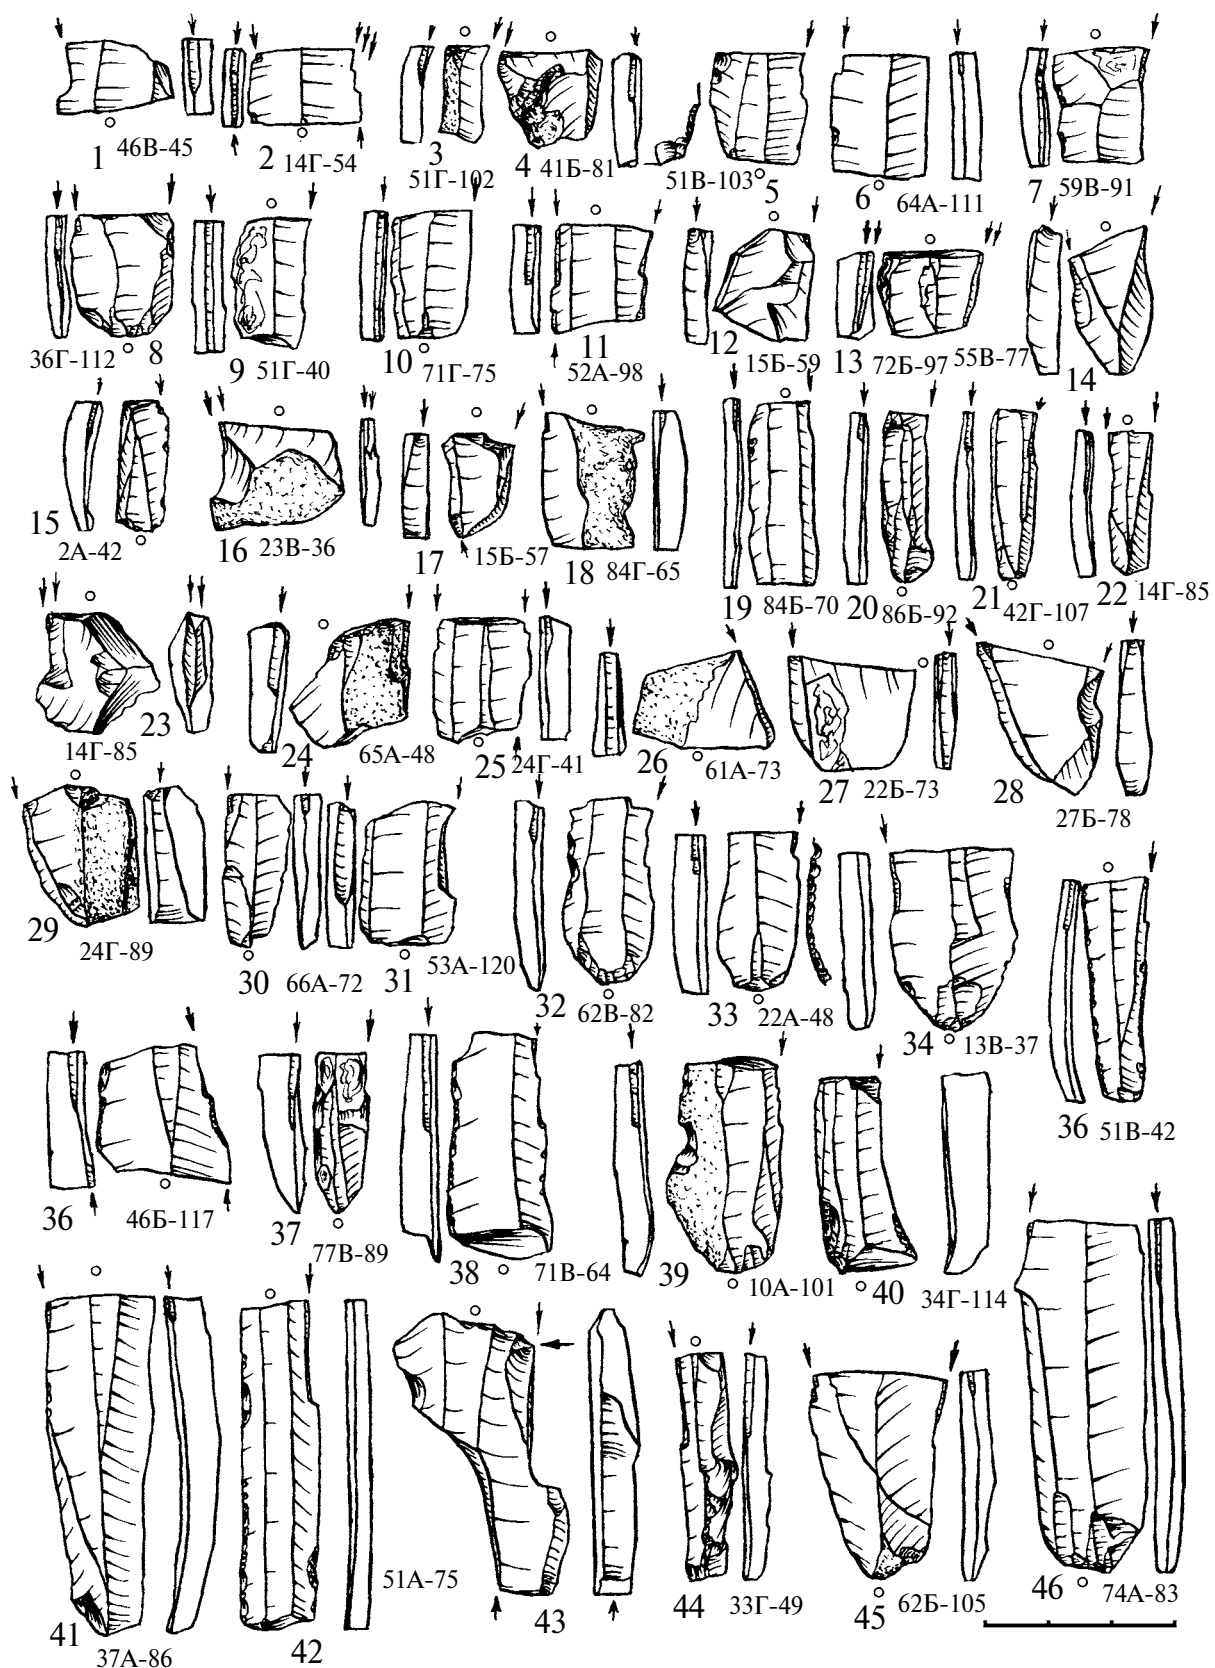 1 46В-45
2 14Г-54
3 51Г-102
4 41Б-81
51В-103 5
6 64А-111
7 59В-91
36Г-112 8
9 51Г-40
10 71Г-75
11 52А-98
12 15Б-59
13 72Б-97
55В-77 14
15 2А-42
16 23В-36
17 15Б-57
18 84Г-65
19 84Б-70
20 86Б-92
21 42Г-107
22 14Г-85
23 14Г-85
24 65А-48
25 24Г-41
26 61А-73
27 22Б-73
28 27Б-78
29 24Г-89
30 66А-72
31 53А-120
32 62В-82
33 22А-48
34 13В-37
36 51В-42
36 46Б-117
37 77В-89
38 71В-64
39 10А-101
40 34Г-114
41 37А-86
42 51А-75
43
44 33Г-49
45 62Б-105
46 74А-83